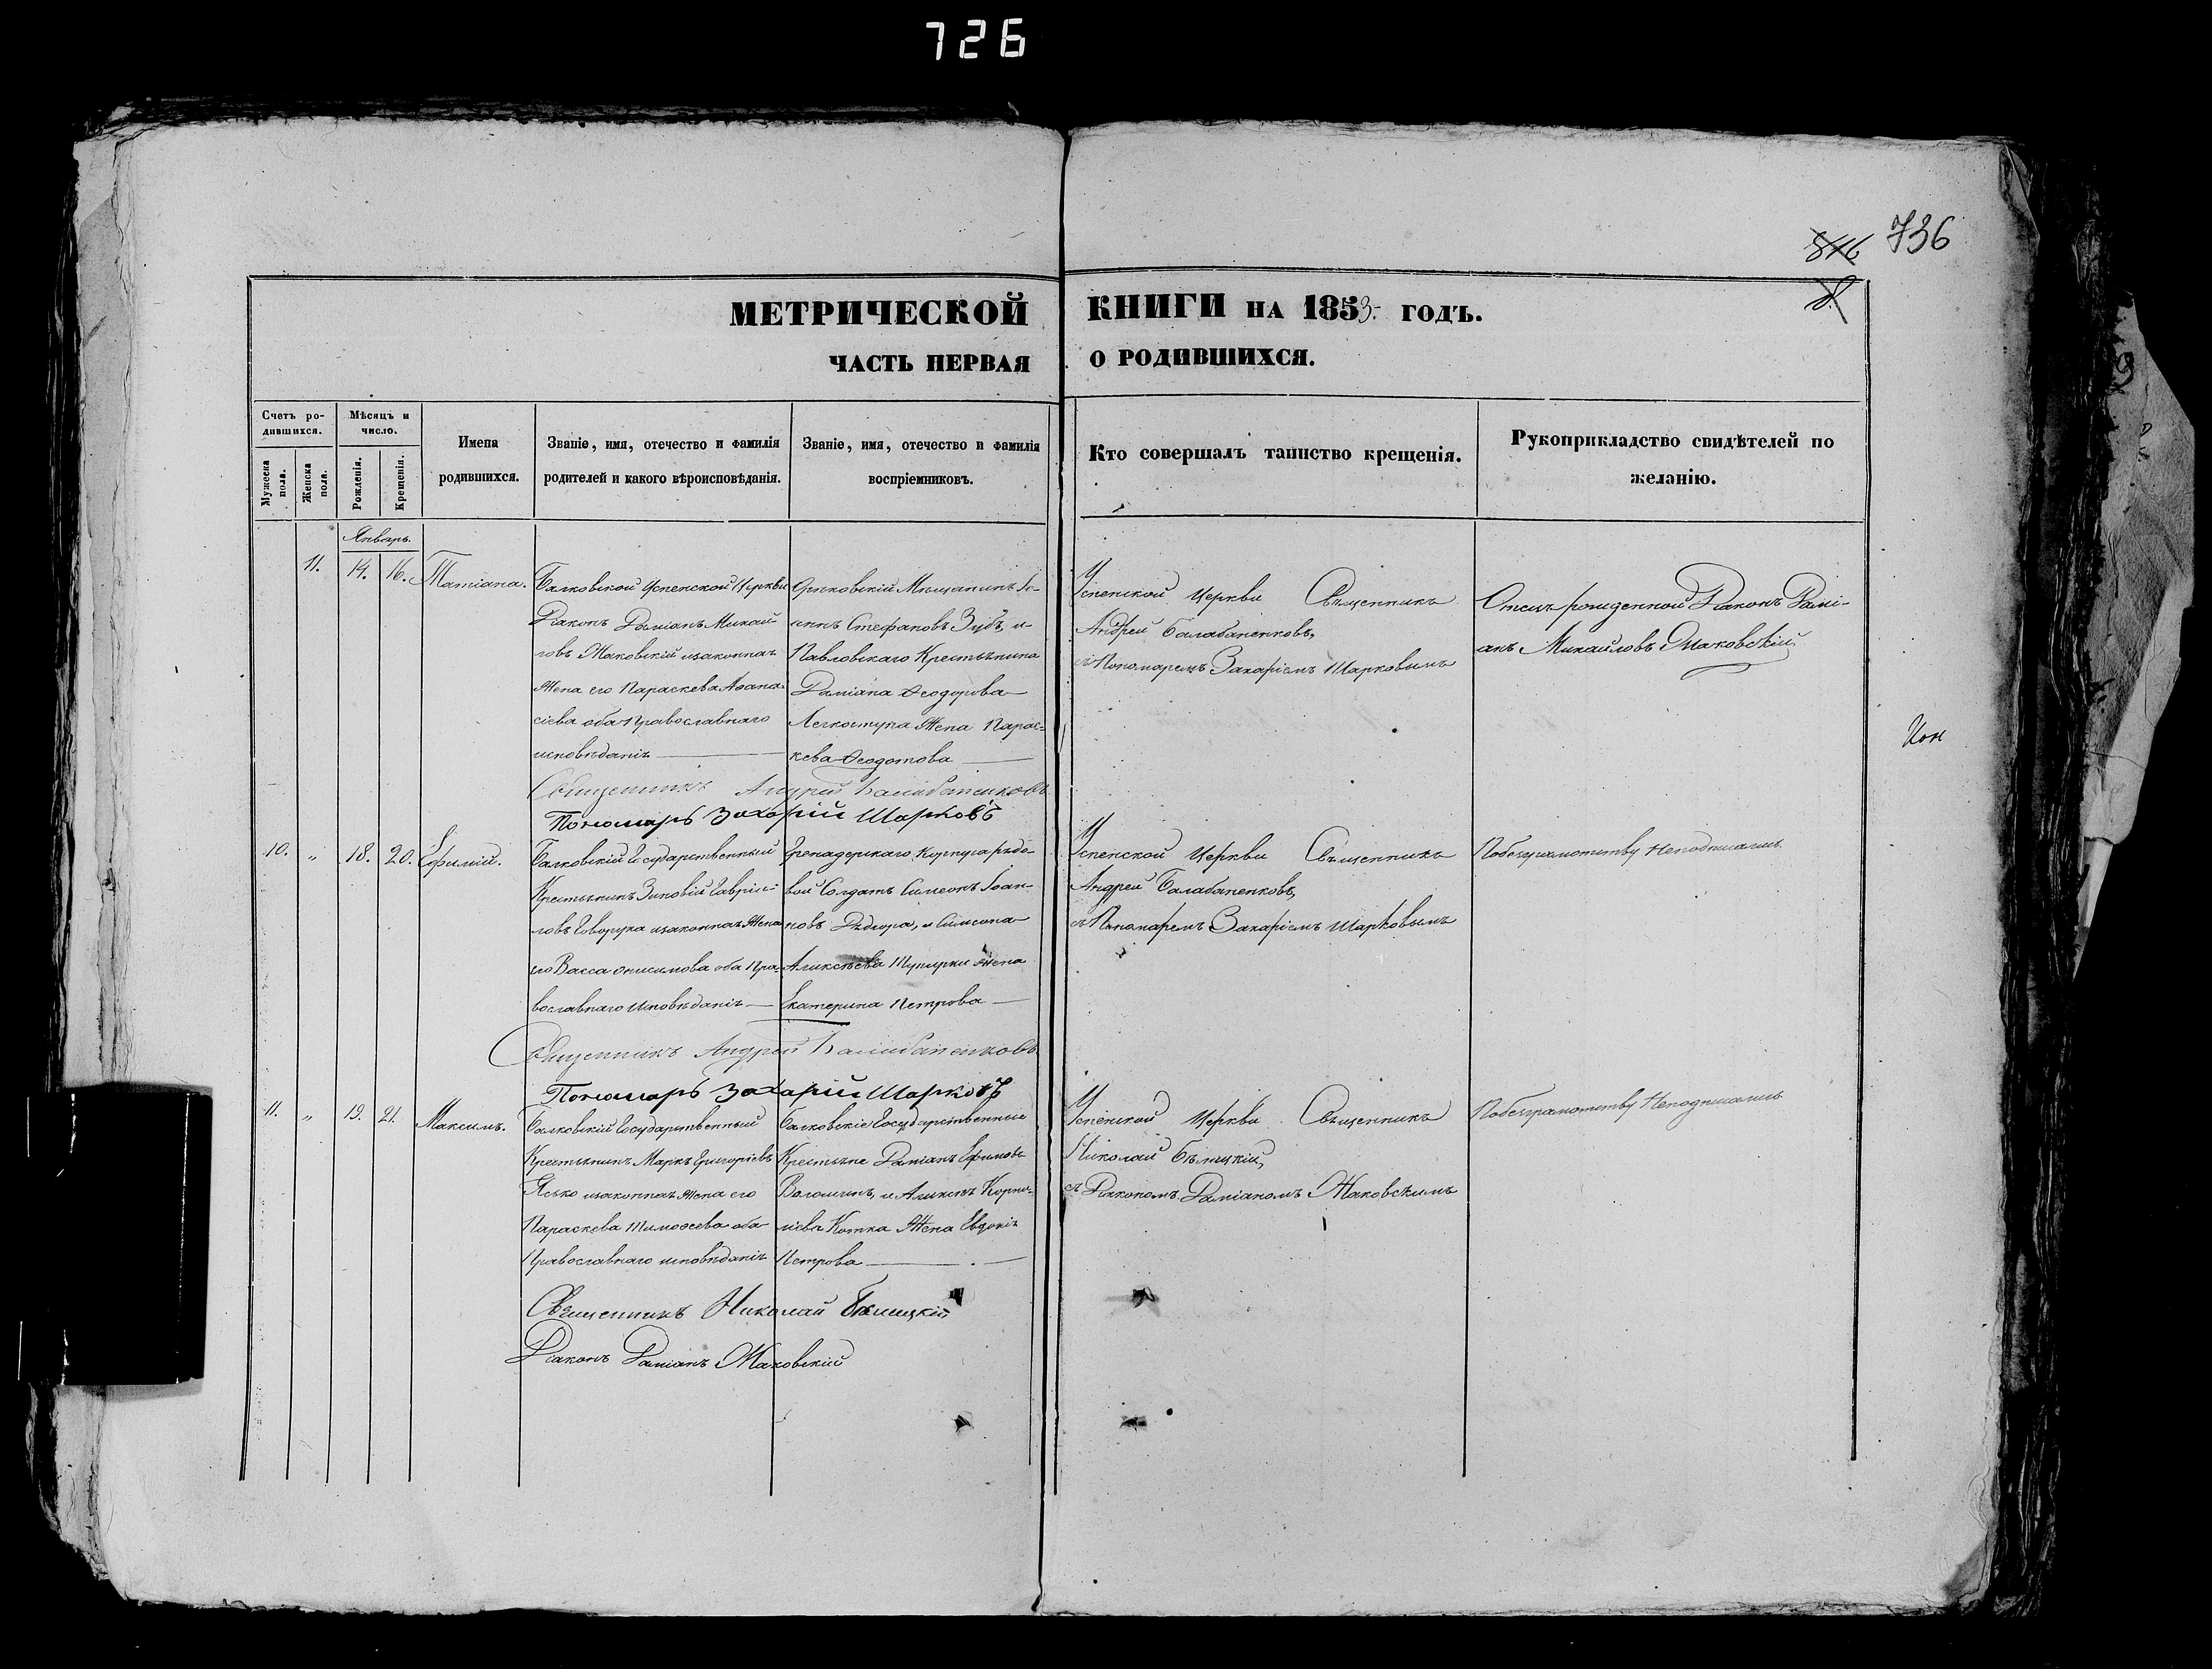 726
816 736
8.
МЕТРИЧЕСКОЙ КНИГИ НА 1853 ГОДЪ.
ЧАСТЬ ПЕРВАЯ О РОДИВШИХСЯ.
Счетъ родившихся.
Мужеска пола.
Женска пола.
Мѣсяцъ и число.
Рожденія.
Крещенія.
Имена родившихся.
Званіе, имя, отечество и фамилія родителей и какого вѣроисповѣданія.
Званіе, имя, отечество и фамилія воспріемниковъ.
Кто совершалъ таинство крещенія.
Рукоприкладство свидѣтелей по желанію.
Январь.
11. 14. 16. Татіана.
Балковской Успенской Церкви
Діаконъ Даміанъ Михай-
ловъ Маковскій изаконная
Жена его Параскева Аѳана-
сіева оба Православнаго
исповѣданія
Орѣховскій Мѣщанинъ Іо-
аннъ Стефановъ Зубъ, и
Павловскаго Крестьянина
Даміана Ѳеодорова
Легкоступа Жена Парас-
кева Ѳеодотова
Успенской Церкви Священникъ
Андрей Балабаненковъ,
съ Пономаремъ Захаріемъ Шарковымъ
Отецъ рожденной Діаконъ Дамі-
анъ Михайловъ Маковскій
Священникъ Андрей Балабаненковъ
Пономарь Захарій Шарковъ
Кон
10. „ 18. 20. Ефимій.
Балковскій Государственный
Крестьянинъ Зиновій Гаврiи-
ловъ Говоруха изаконная Жена
его Васса Онисимова оба Пра-
вославнаго исповѣданія
Гренадерскаго Корпуса рядо-
вой Солдатъ Симеонъ Іоан-
новъ и Симеона
Алексѣева Жена
Екатерина Петрова
Успенской Церкви Священникъ
Андрей Балабаненковъ,
съ Пономаремъ Захаріемъ Шарковымъ
Побезграмотству Неподписались
Священникъ Андрей Балабаненковъ
Пономарь Захарій Шарковъ
11. „ 19. 21. Максимъ.
Балковскій Государственный
Крестьянинъ Маркъ Григоріевъ
Ясько изаконная Жена его
Параскева Тимоѳеева оба
Православнаго исповѣданія
Балковскіе Государственные
Крестьяне Даміанъ Ефимовъ
Волошинъ, и Алексѣя Корни-
ліева Котка Жена Евдокія
Петрова
Успенской Церкви Священникъ
Николай Бѣлицкій,
съ Діакономъ Даміаномъ Маковскимъ
Побезграмотству Неподписались
Священникъ Николай Бѣлицкій
Діаконъ Даміанъ Маковскій